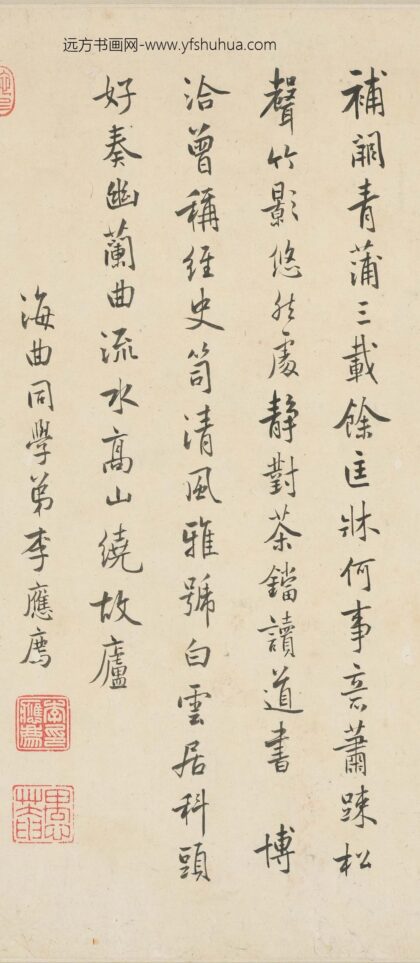 远方书画网-www.yfshuhua.com
補闕青蒲三載餘匡牀何事意蕭疎松
聲竹影悠然處靜對茶鐺讀道書 博
洽曾稱經史笥清風雅號白雲居科頭
好奏幽蘭曲流水高山繞故廬
海曲同學弟李應廌
李印應廌